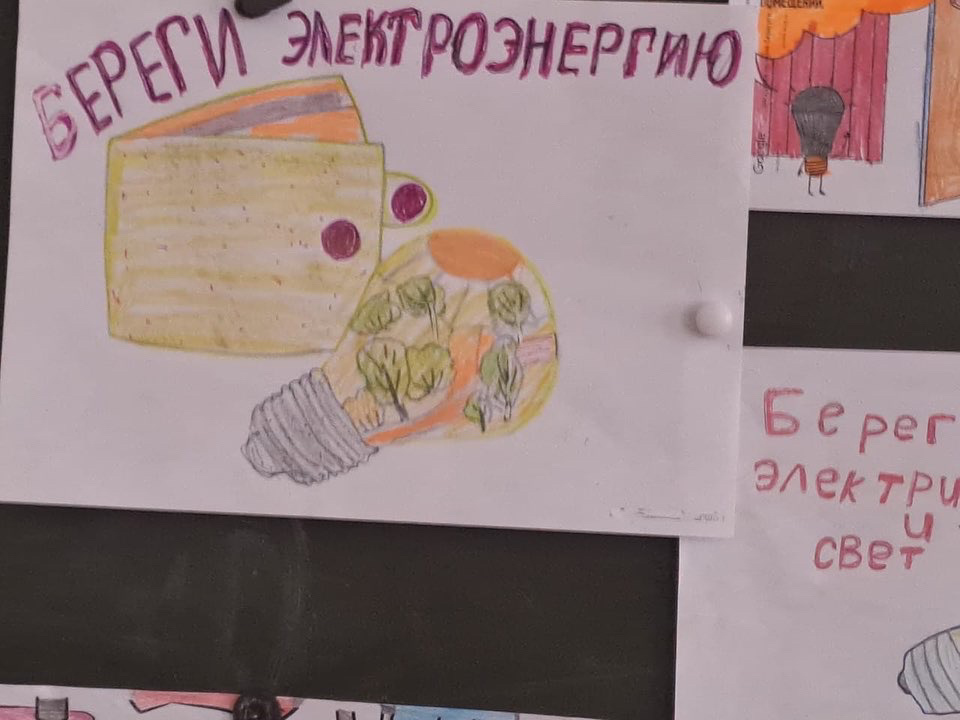 БЕРЕГИ ЭЛЕКТРОЭНЕРГИЮ
ПОМЕЩЕНИИ
Google
Берег
электри
и
свет